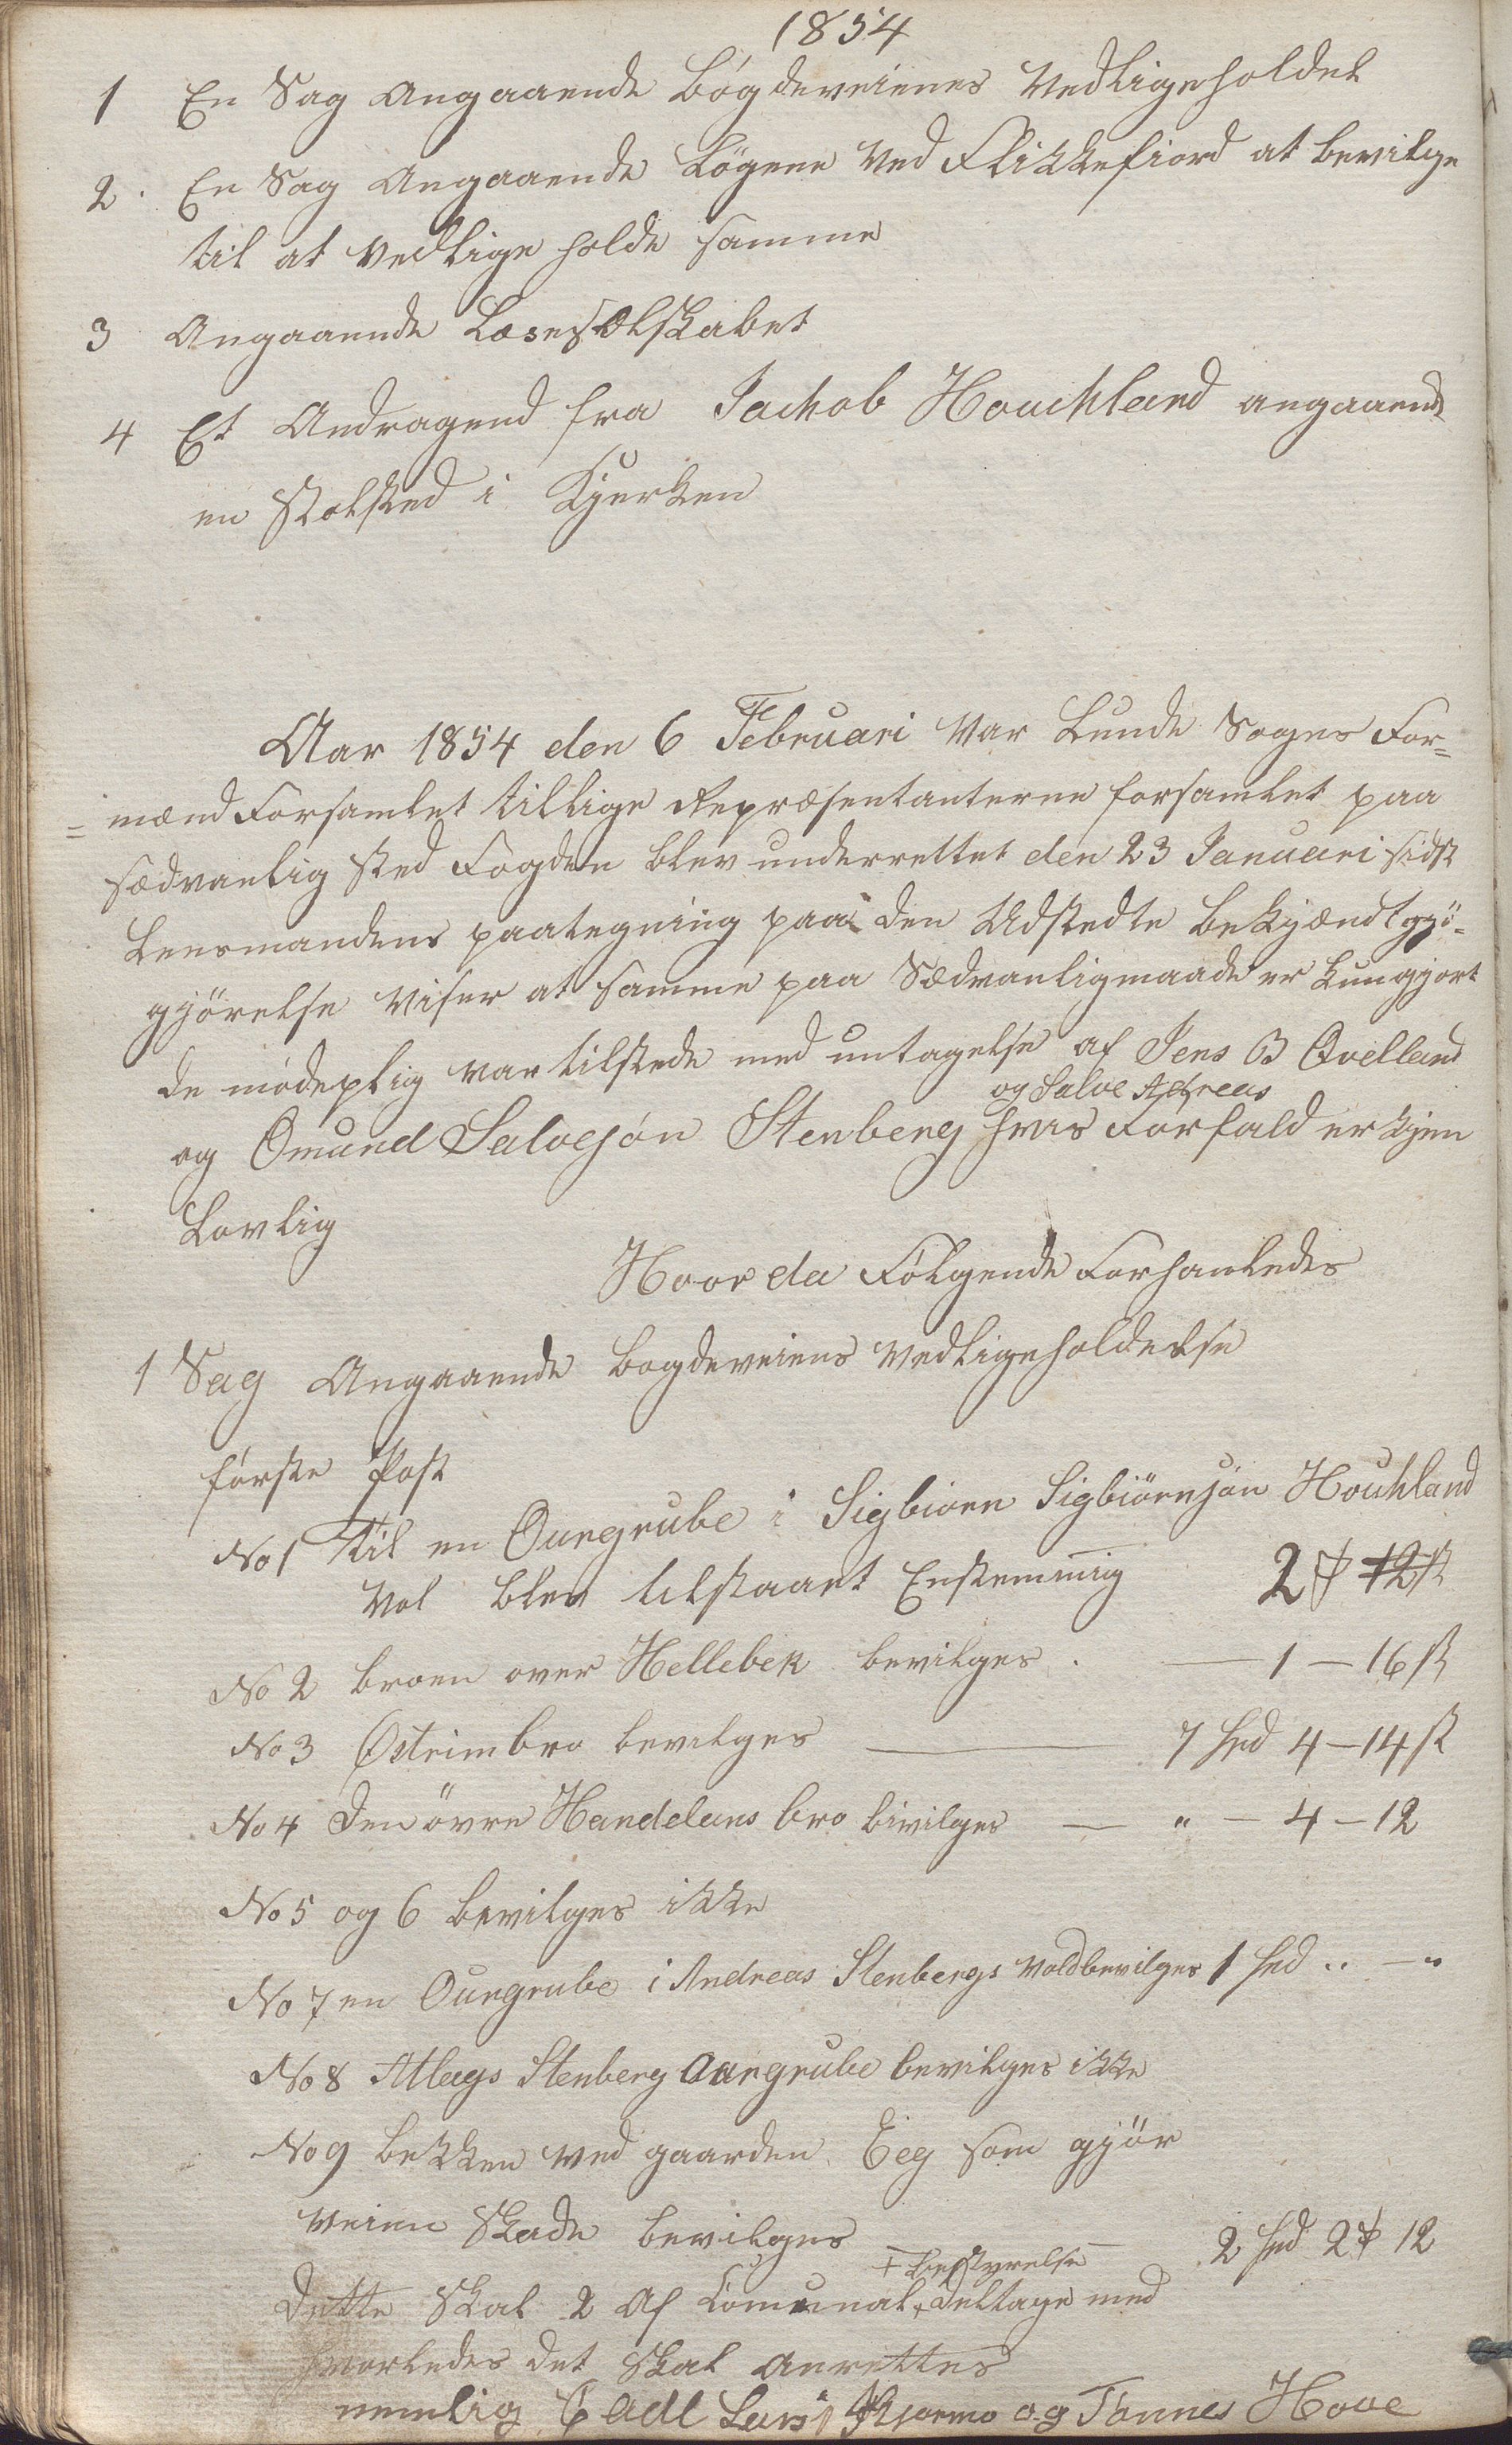 1854
1 En Sag Angaaende bøgdeveienes Vedligeholdel
2. En Sag Angaaende Løgene ved Flikkefiord at bevilge
til at vedlige holde samme
3 Angaaende Læseselskabet
4 Et Andragend fra Jachob Houchland angaaend
en Stolsted i Kjerken
Aar 1854 den 6 Februari var Lunde Sogns For=
=mænd Forsamlet tillige Repræsentanterne forsamlet paa
sædvanlig sted Fogden blev underrettet den 23 Januari sidst
Lensmandens paategning paa den Udstedte bekjændtgjö-
gjörelse viser at samme paa Sædvanligmaade er kungjort
de mødeplig var tilstede med untagelse af Jens B Qvelland
og Salve Adreas
og Omund Salvesøn Stenberg hvis Forfald er kjen
Lovlig
Hvor da Følgende Forhanledes
1 Sag Angaaende bogdeveiens vedligeholdelse
første Post
No 1 til en Ourgrube i Sigbiørn Sigbiörnsøn Houkland
Vol blev tilstaaet Enstemmig 2 # 12 sk
No 2 broen over Hellebek bevilges . — 1 — 16 sk
No 3 Østrimbro bevilges — 7 Spd 4 — 14 sk
No 4 den övre Handelans bro bivilges — " — 4 — 12
No 5 og 6 bevilges ikke
No 7 en Ourgrube i Andreas Stenbergs Voldbevilges 1 Spd .. — "
No 8 Atlags Stenberg Aurgrube bevilges ikke
No 9 bekken ved gaarden Eeg som gjör
veien Skade bevilges 2 Spd 2 # 12
+ bestyrelse
Dette Skal 2 Af Comunal + deltage med
hvorledes det Skal anrettes
nemlig Lars Skjærmo og Tønnes Hove